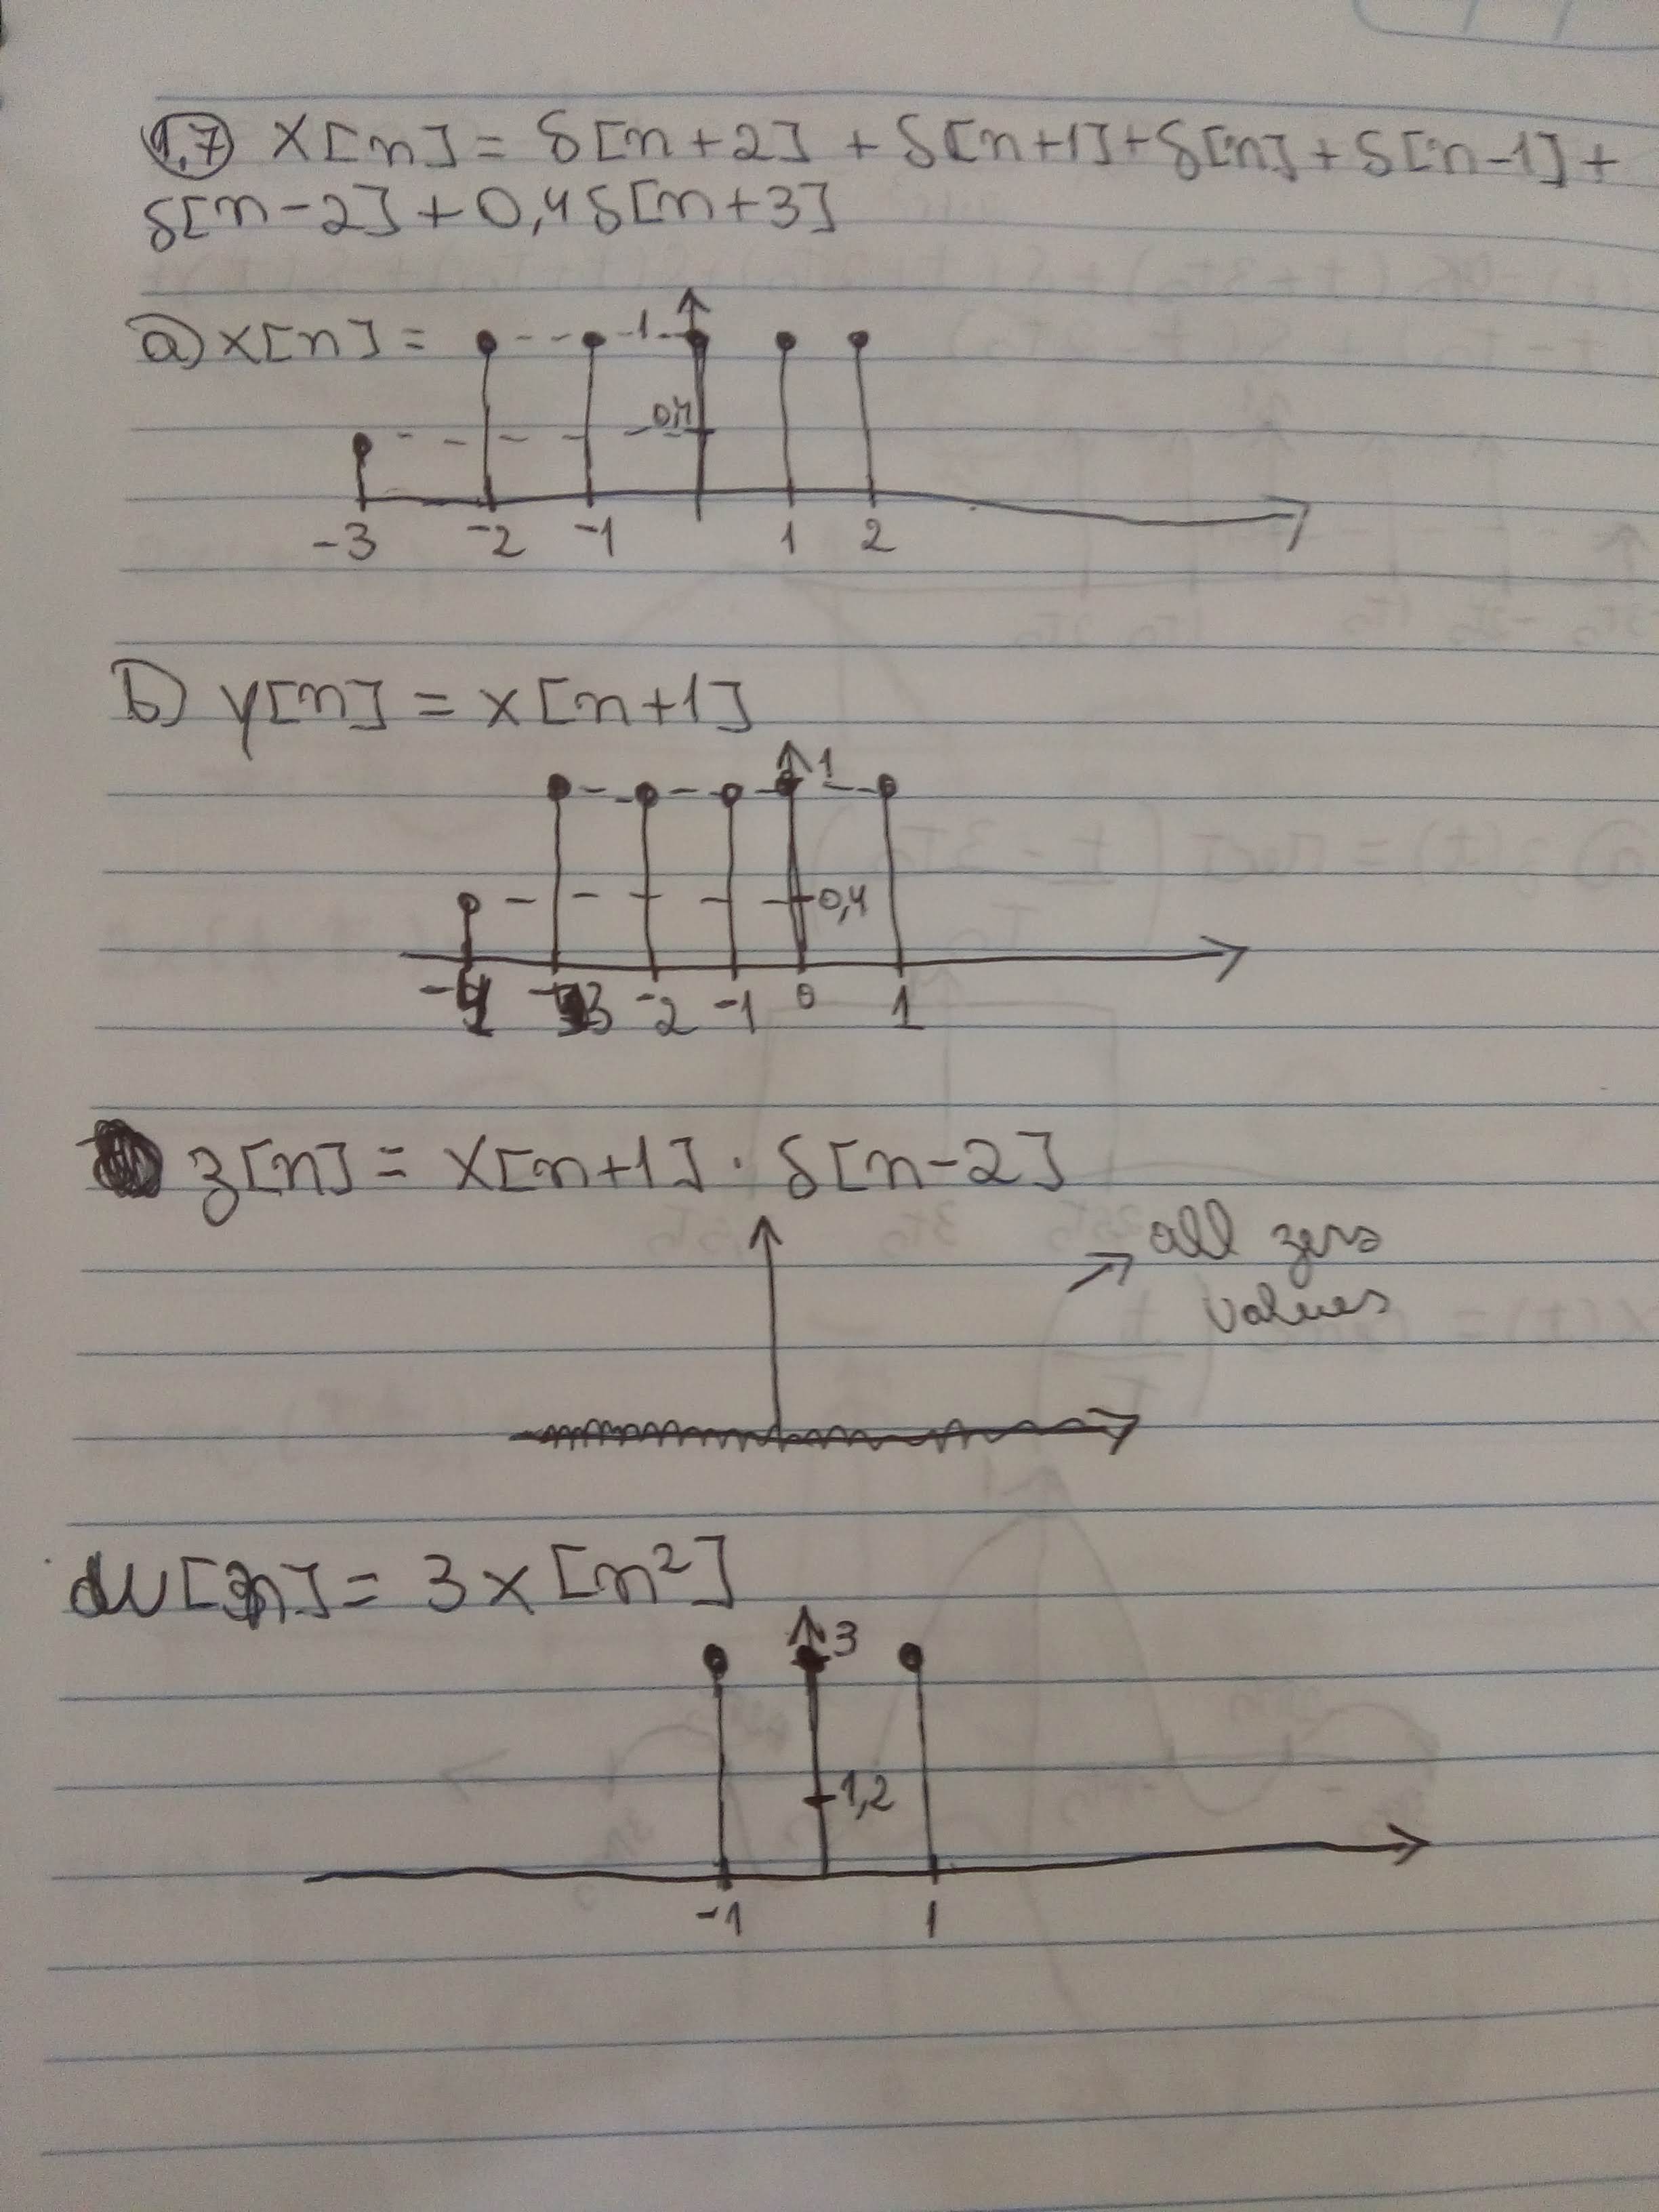 1,7 x[n] = δ[n+2] + δ[n+1] + δ[n] + δ[n-1] +
δ[n-2] + 0,4 δ[n+3]
a) x[n] =
1
0,4
-3 -2 -1 1 2
b) y[n] = x[n+1]
1
0,4
-4 -3 -2 -1 0 1
z[n] = x[n+1] · δ[n-2]
all zero
values
[n] = 3x[n²]
3
1,2
-1 1